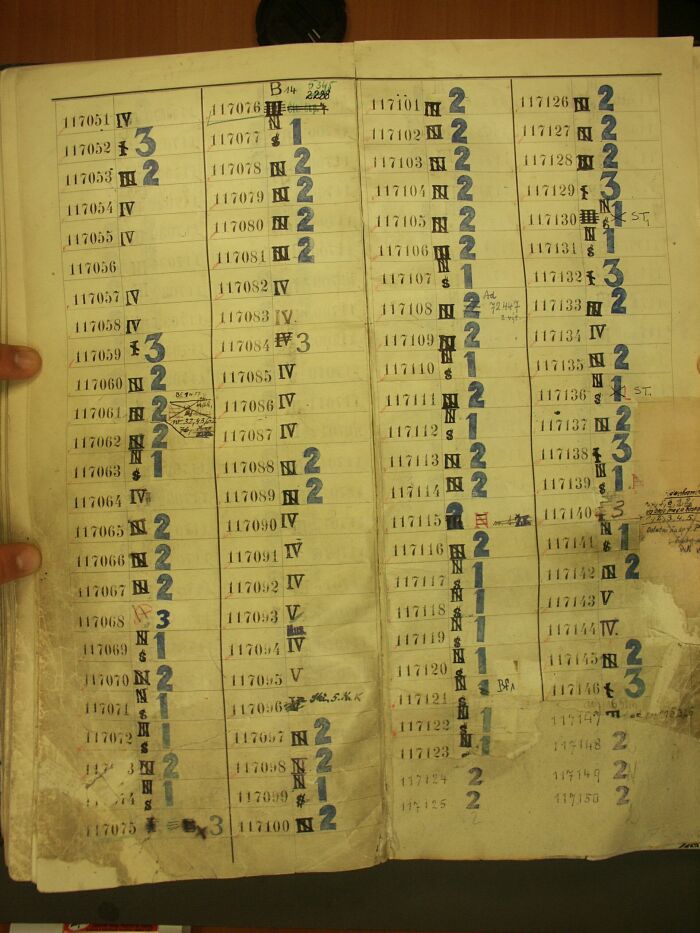 117051 IV
117052 I 3
117053 N 2
117054 IV
117055 IV
117056
117057 IV
117058 IV
117059 I 3
117060 N 2
117061 N 2
117062 N 2
117063 N s 1
117064 IV
117065 N 2
117066 N 2
117067 N 2
117068 3
117069 N s 1
117070 N 2
117071 N s 1
117072 N s 1
3 N 2
74 N s 1
117075 x 3
B 14
117076 III
117077 N s 1
117078 N 2
117079 N 2
117080 N 2
117081 N 2
117082 IV
117083 IV
117084 IV 3
117085 IV
117086 IV
117087 IV
117088 N 2
117089 N 2
117090 IV
117091 IV
117092 IV
117093 V
117094 IV
117095 V
117096
117097 N 2
117098 N 2
117099 N s 1
117100 N 2
117101 N 2
117102 N 2
117103 N 2
117104 N 2
117105 N 2
117106 N 2
117107 N s 1
117108 N 2 Ad 72447
117109 N 2
117110 N s 1
117111 N 2
117112 N s 1
117113 N 2
117114 N 2
117115 2
117116 N 2
117117 N s 1
117118 N s 1
117119 N s 1
117120 N s 1
117121 N s Bf1
117122 N s 1
117123 N 1
117124 2
117125 2
117126 N 2
117127 N 2
117128 N 2
117129 I 3
117130 III N s 1 ST1
117131 N s 1
117132 I 3
117133 N 2
117134 IV
117135 N 2
117136 N s 1 ST.
117137 N 2
117138 I 3
117139 N s 1
117140 I 3
117141 N s 1
117142 N 2
117143 V
117144 IV.
117145 N 2
117146 I 3
117147
117148 2
117149 2
117150 2